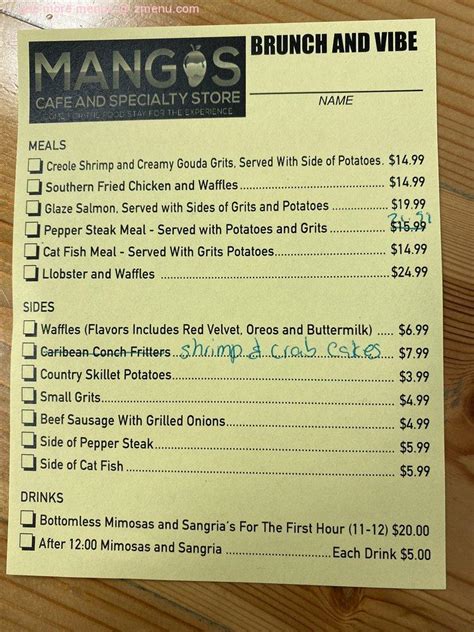 see more menus at zmenu.com
MANGOS
CAFE AND SPECIALTY STORE
COME FOR THE FOOD STAY FOR THE EXPERIENCE
BRUNCH AND VIBE
NAME
MEALS
Creole Shrimp and Creamy Gouda Grits, Served With Side of Potatoes. $14.99
Southern Fried Chicken and Waffles $14.99
Glaze Salmon, Served with Sides of Grits and Potatoes $19.99
Pepper Steak Meal - Served with Potatoes and Grits $15.99
Cat Fish Meal - Served With Grits Potatoes $14.99
Llobster and Waffles $24.99
SIDES
Waffles (Flavors Includes Red Velvet, Oreos and Buttermilk) ..... $6.99
Caribean Conch Fritters shrimp & crab cakes $7.99
Country Skillet Potatoes $3.99
Small Grits $4.99
Beef Sausage With Grilled Onions $4.99
Side of Pepper Steak $5.99
Side of Cat Fish $5.99
DRINKS
Bottomless Mimosas and Sangria's For The First Hour (11-12) $20.00
After 12:00 Mimosas and Sangria Each Drink $5.00